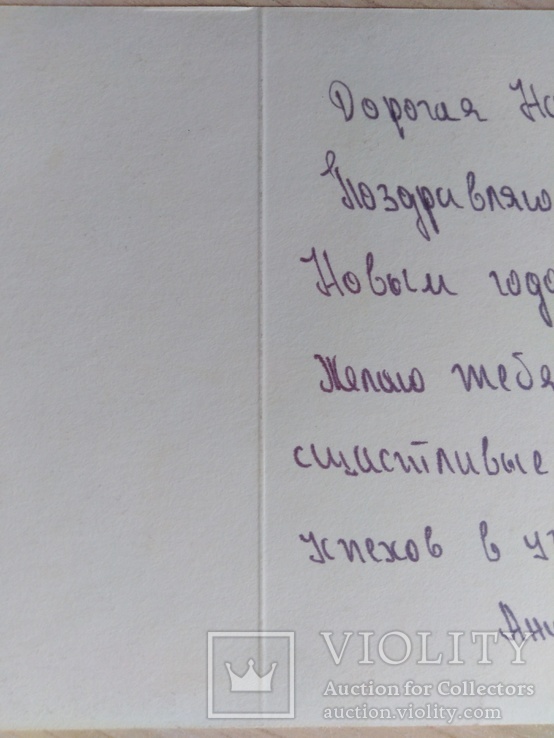 Дорогая На
Поздравляю
Новым годо
Желаю тебя
сщастливые
успехов в уч
Ани
VIOLITY
Auction for Collectors
auction.violity.com